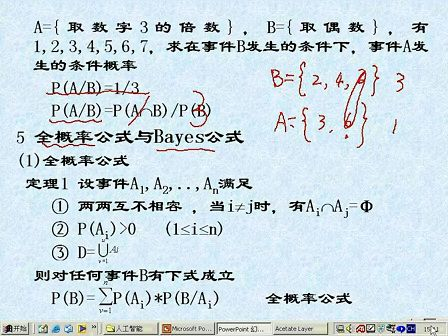 A={ 取 数 字 3 的 倍 数 } ， B={ 取 偶 数 } ， 有
1,2,3,4,5,6,7，求在事件B发生的条件下，事件A发
生的条件概率
P(A/B)=1/3
B={2,4,6} 3
P(A/B)=P(A∩B)/P(B) 3
A={3,6} 1
5 全概率公式与Bayes公式
(1)全概率公式
定理1 设事件A₁,A₂,..,Aₙ满足
① 两两互不相容，当i≠j时，有Aᵢ∩Aⱼ=Φ
② P(Aᵢ)>0 (1≤i≤n)
③ D=⋃ᵥ₌₁ⁿAi
则对任何事件B有下式成立
P(B)=∑ᵥ₌₁ⁿP(Aᵢ)*P(B/Aᵢ) 全概率公式
开始 人工智能 Microsoft Po... PowerPoint 幻... Acetate Layer